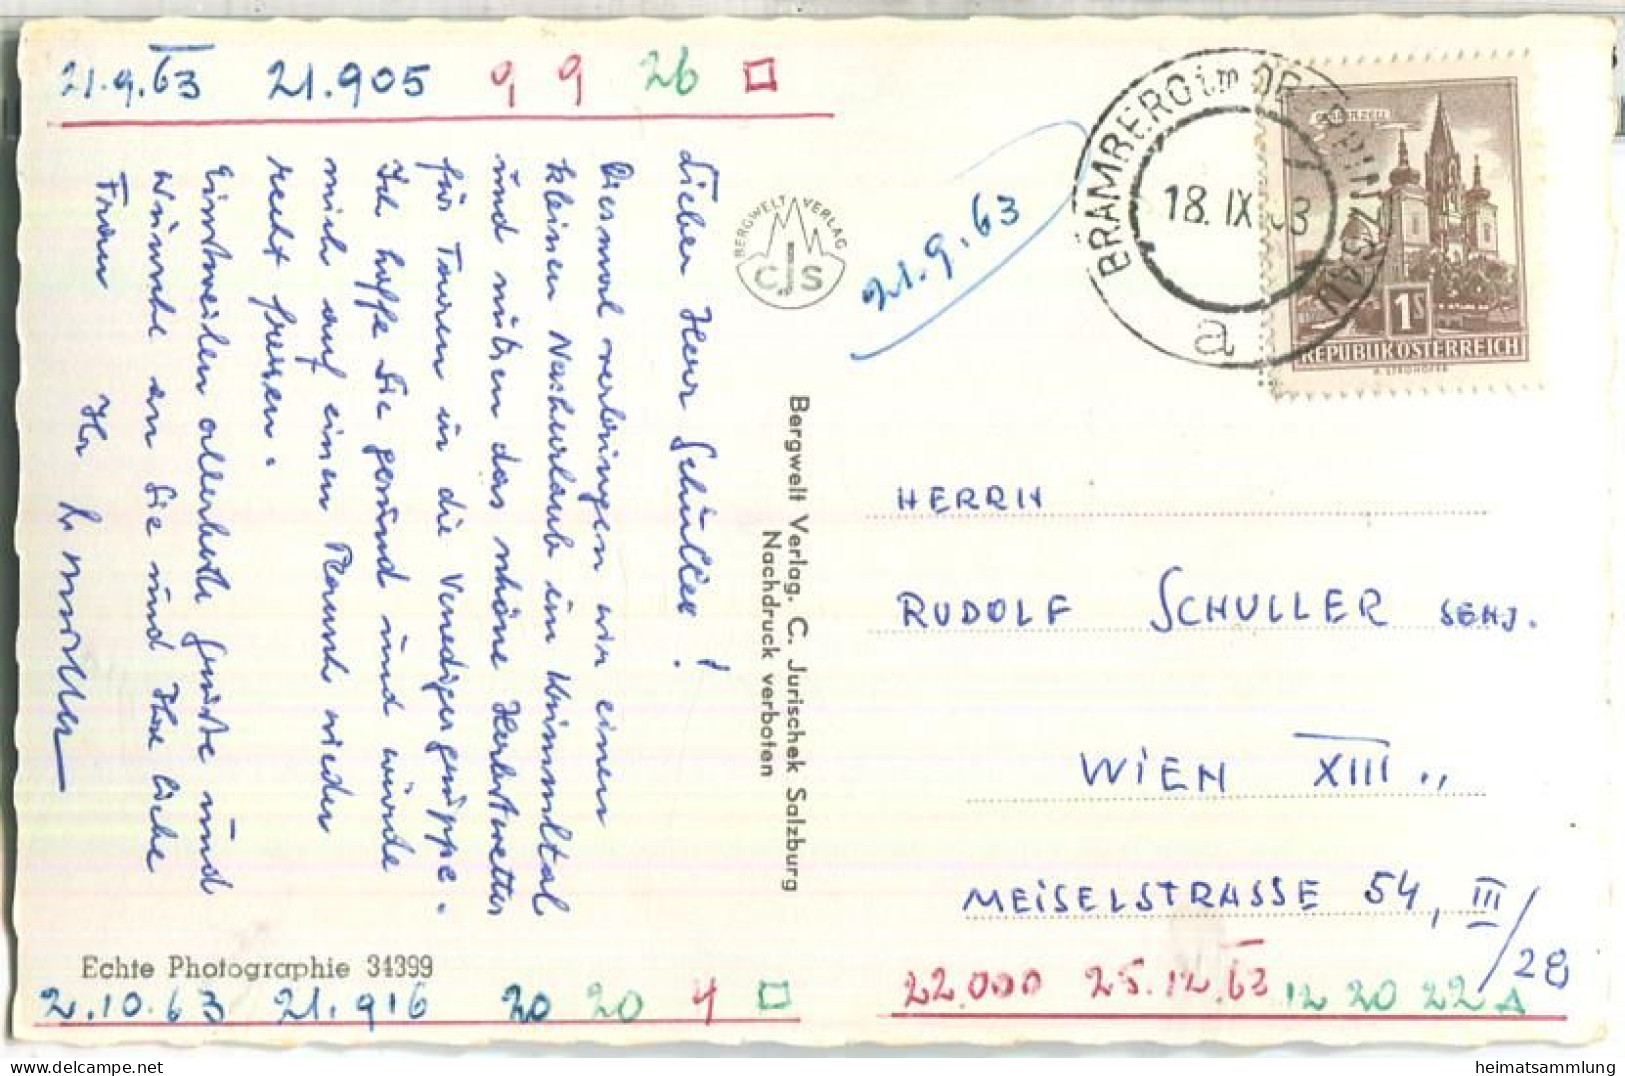 21.9.63 21.905 9 9 26 □
Lieber Herr Schuller!
Diesmal verbringen wir einen
kleinen Nachurlaub im Krimmltal
und nützen das schöne Herbstwetter
für Touren in die Venedigergruppe.
Ich hoffe Sie gesund und würde
mich auf einen Plausch wieder
recht freuen.
Einstweilen allerbeste Grüße und
Wünsche an Sie und Ihre liebe
Frau Ihr
Echte Photographie 34399
2.10.63 21.916 20 20 4 □
BERGWELT VERLAG
CJS
Bergwelt Verlag. C. Jurischek Salzburg
Nachdruck verboten
21.9.63
BRAMBERG im OBERPINZGAU
18. IX. 63
a
1S
REPUBLIK ÖSTERREICH
HERRN
RUDOLF SCHULLER SENJ.
WIEN XIII.,
MEISELSTRASSE 54, III/28
22.000 25.12.63 12 20 22 Δ
heimatsammlung